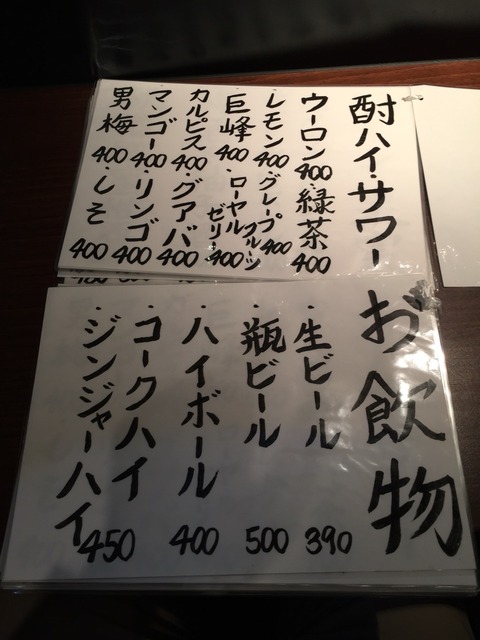 酎ハイ・サワー
ウーロン400
・緑茶400
レモン400
・グレープフルーツ400
巨峰400
・ローヤルゼリー400
カルピス400
・グアバ400
マンゴー400
・リンゴ400
男梅400
・しそ400
お飲物
・生ビール390
・瓶ビール500
・ハイボール400
・コークハイ
・ジンジャーハイ450